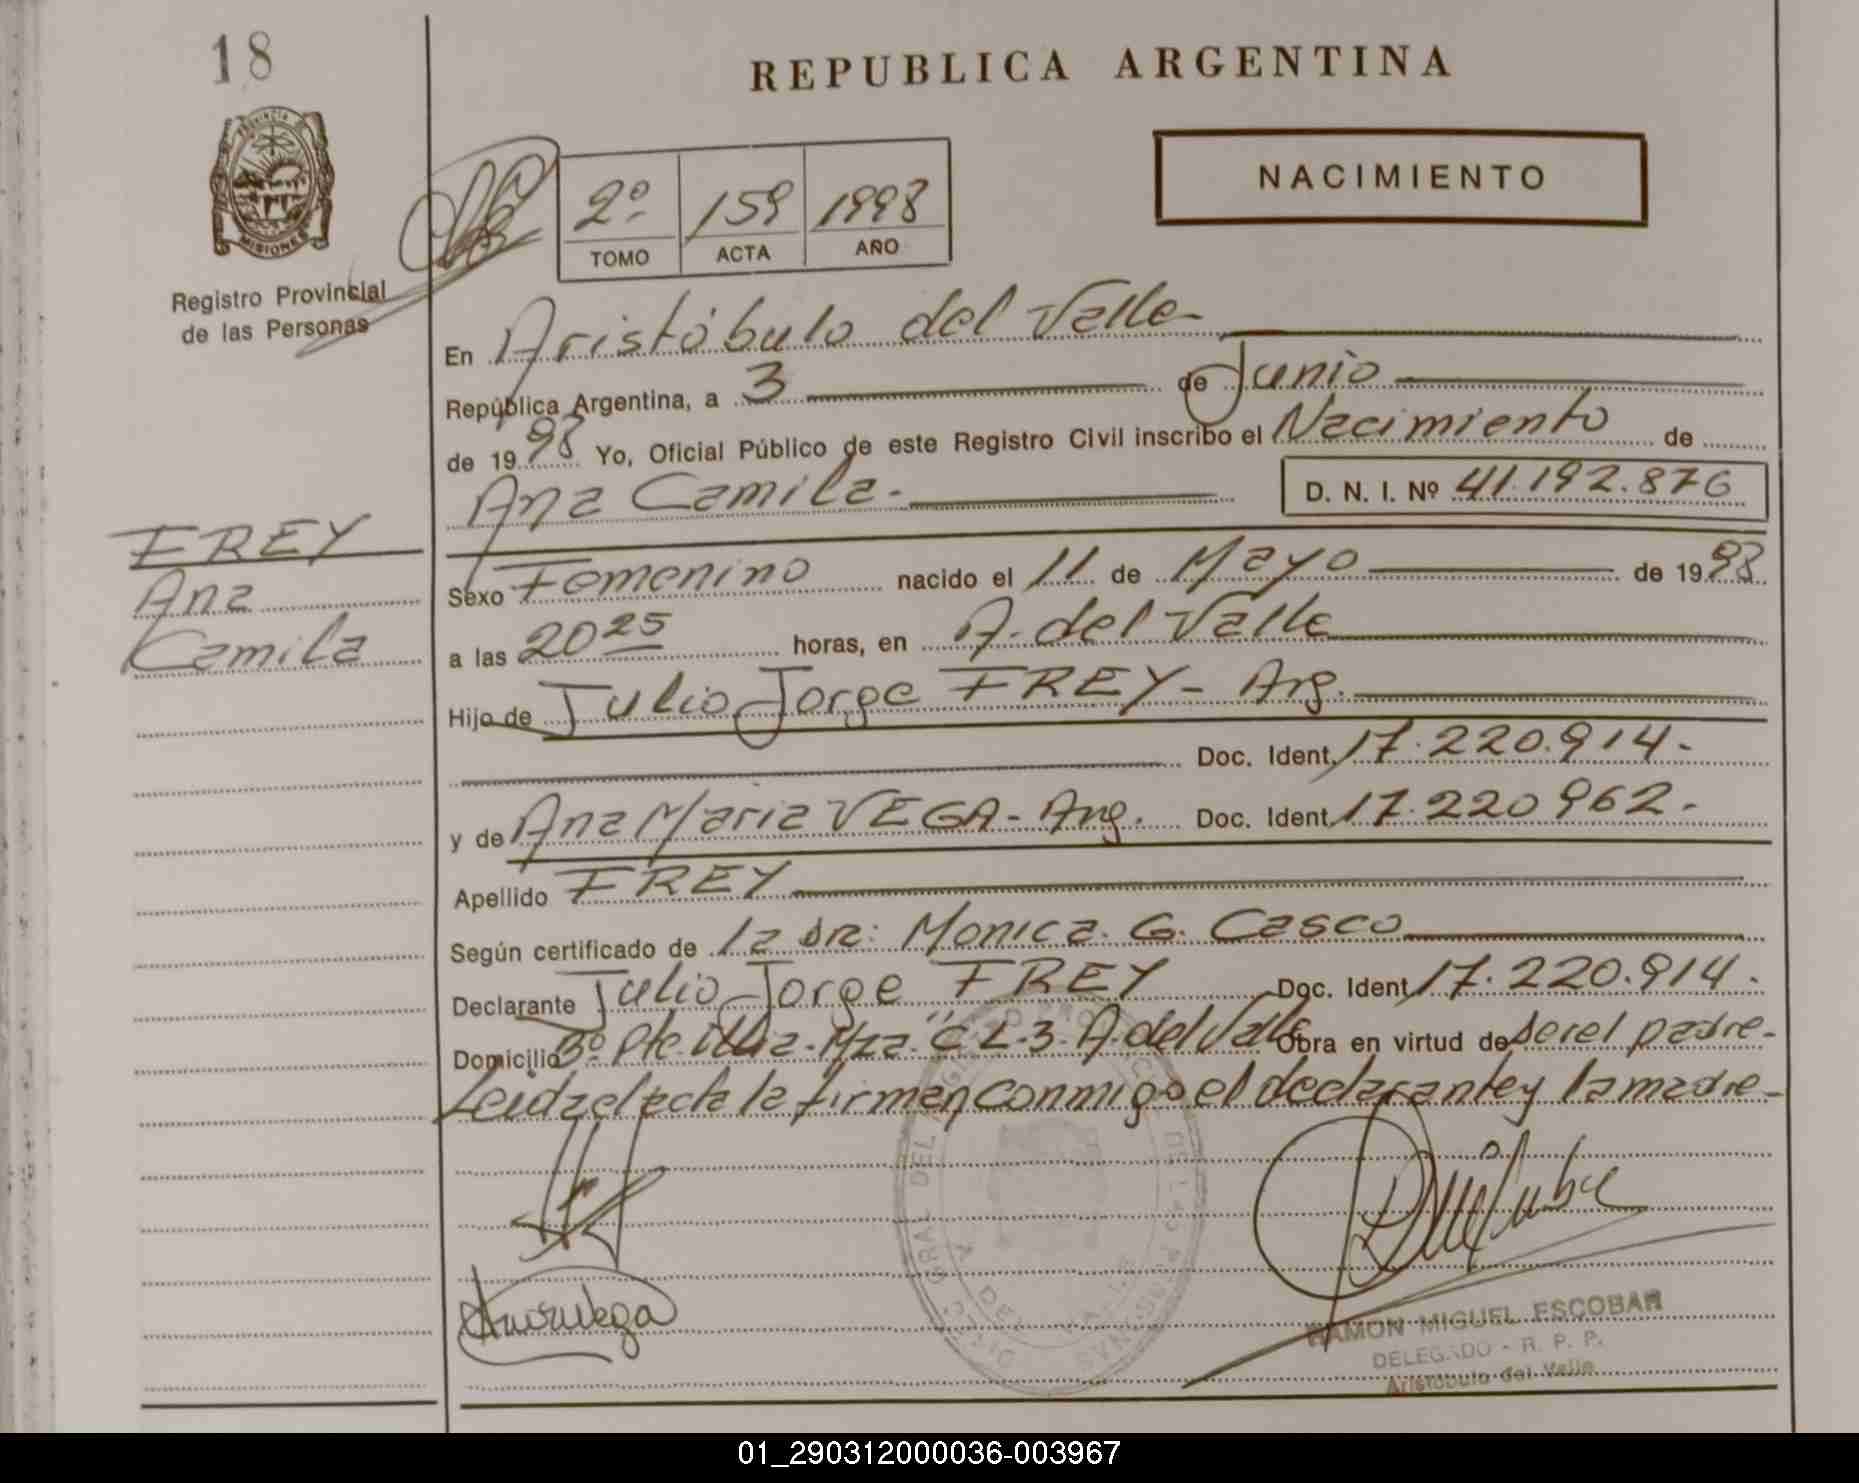 18
REPUBLICA ARGENTINA
PROVINCIA DE
MISIONES
Registro Provincial
de las Personas
2º 159 1998
TOMO ACTA AÑO
NACIMIENTO
En Aristóbulo del Valle
República Argentina, a 3 de Junio
de 1998 Yo, Oficial Público de este Registro Civil inscribo el Nacimiento de
Ana Camila.- D. N. I. Nº 41.192.876
FREY
Ana
Camila
Sexo Femenino nacido el 11 de Mayo de 1998
a las 20 25 horas, en A. del Valle
Hijo de Julio Jorge FREY - Arg.
Doc. Ident. 17.220.914.-
y de Ana Maria VEGA - Arg. Doc. Ident. 17.220962.-
Apellido FREY
Según certificado de la dra: Monica. G. Casco
Declarante Julio Jorge FREY Doc. Ident. 17.220.914.
Domicilio Bº Pte. Illia - Mza. "C" L-3. A. del Valle Obra en virtud de ser el padre-
Leida el acta la firman conmigo el declarante y la madre-
RAMON MIGUEL ESCOBAR
DELEGADO - R. P. P.
Aristobulo del Valle
01_290312000036-003967